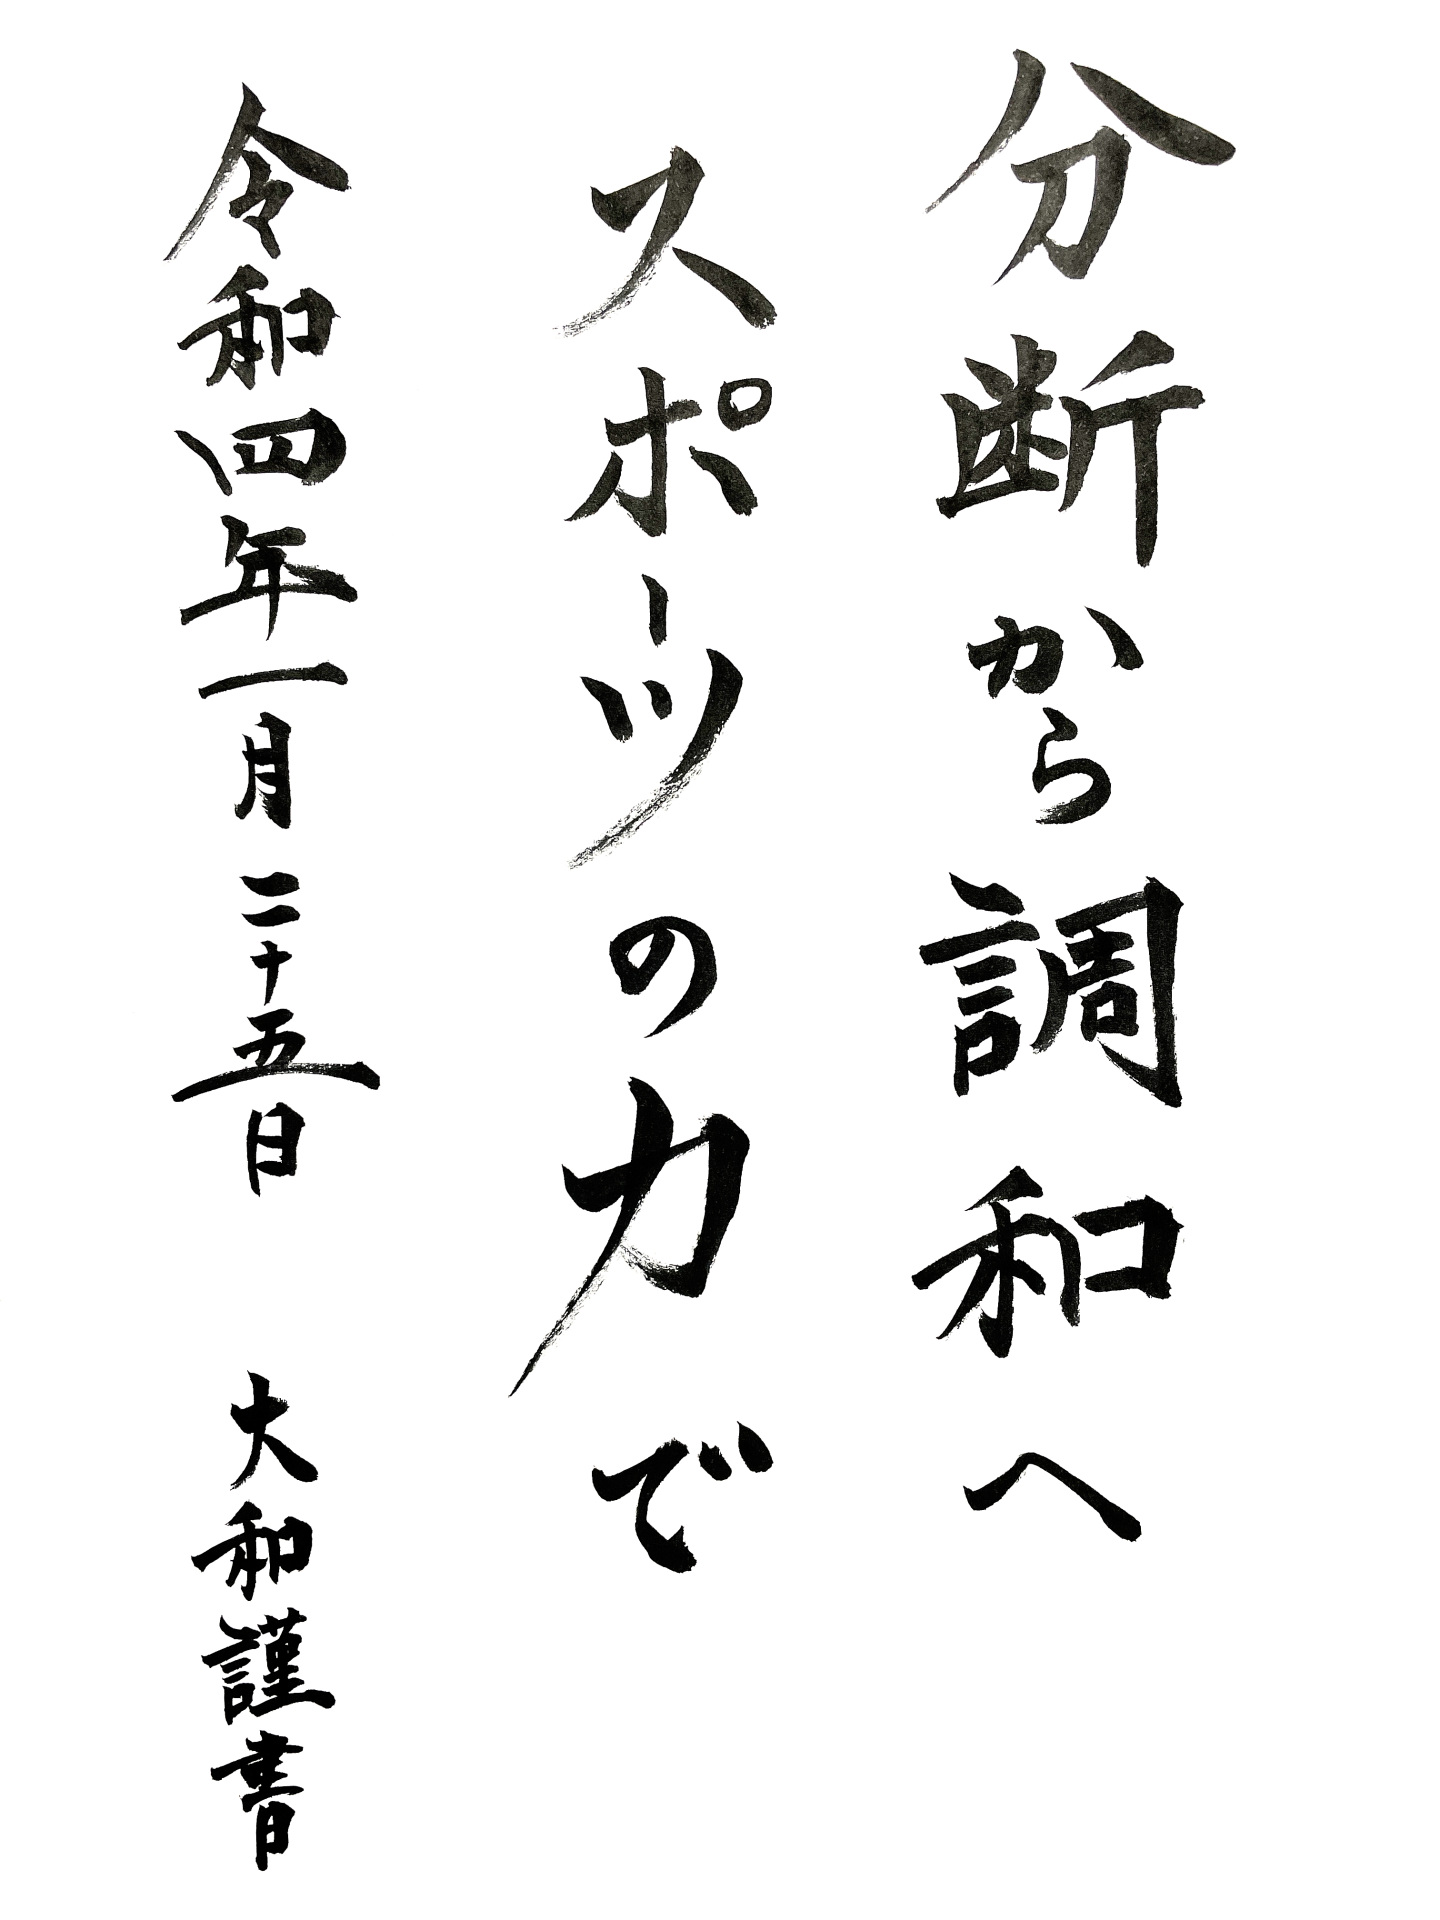 分断から調和へ
スポーツの力で
令和四年一月二十五日 大和謹書